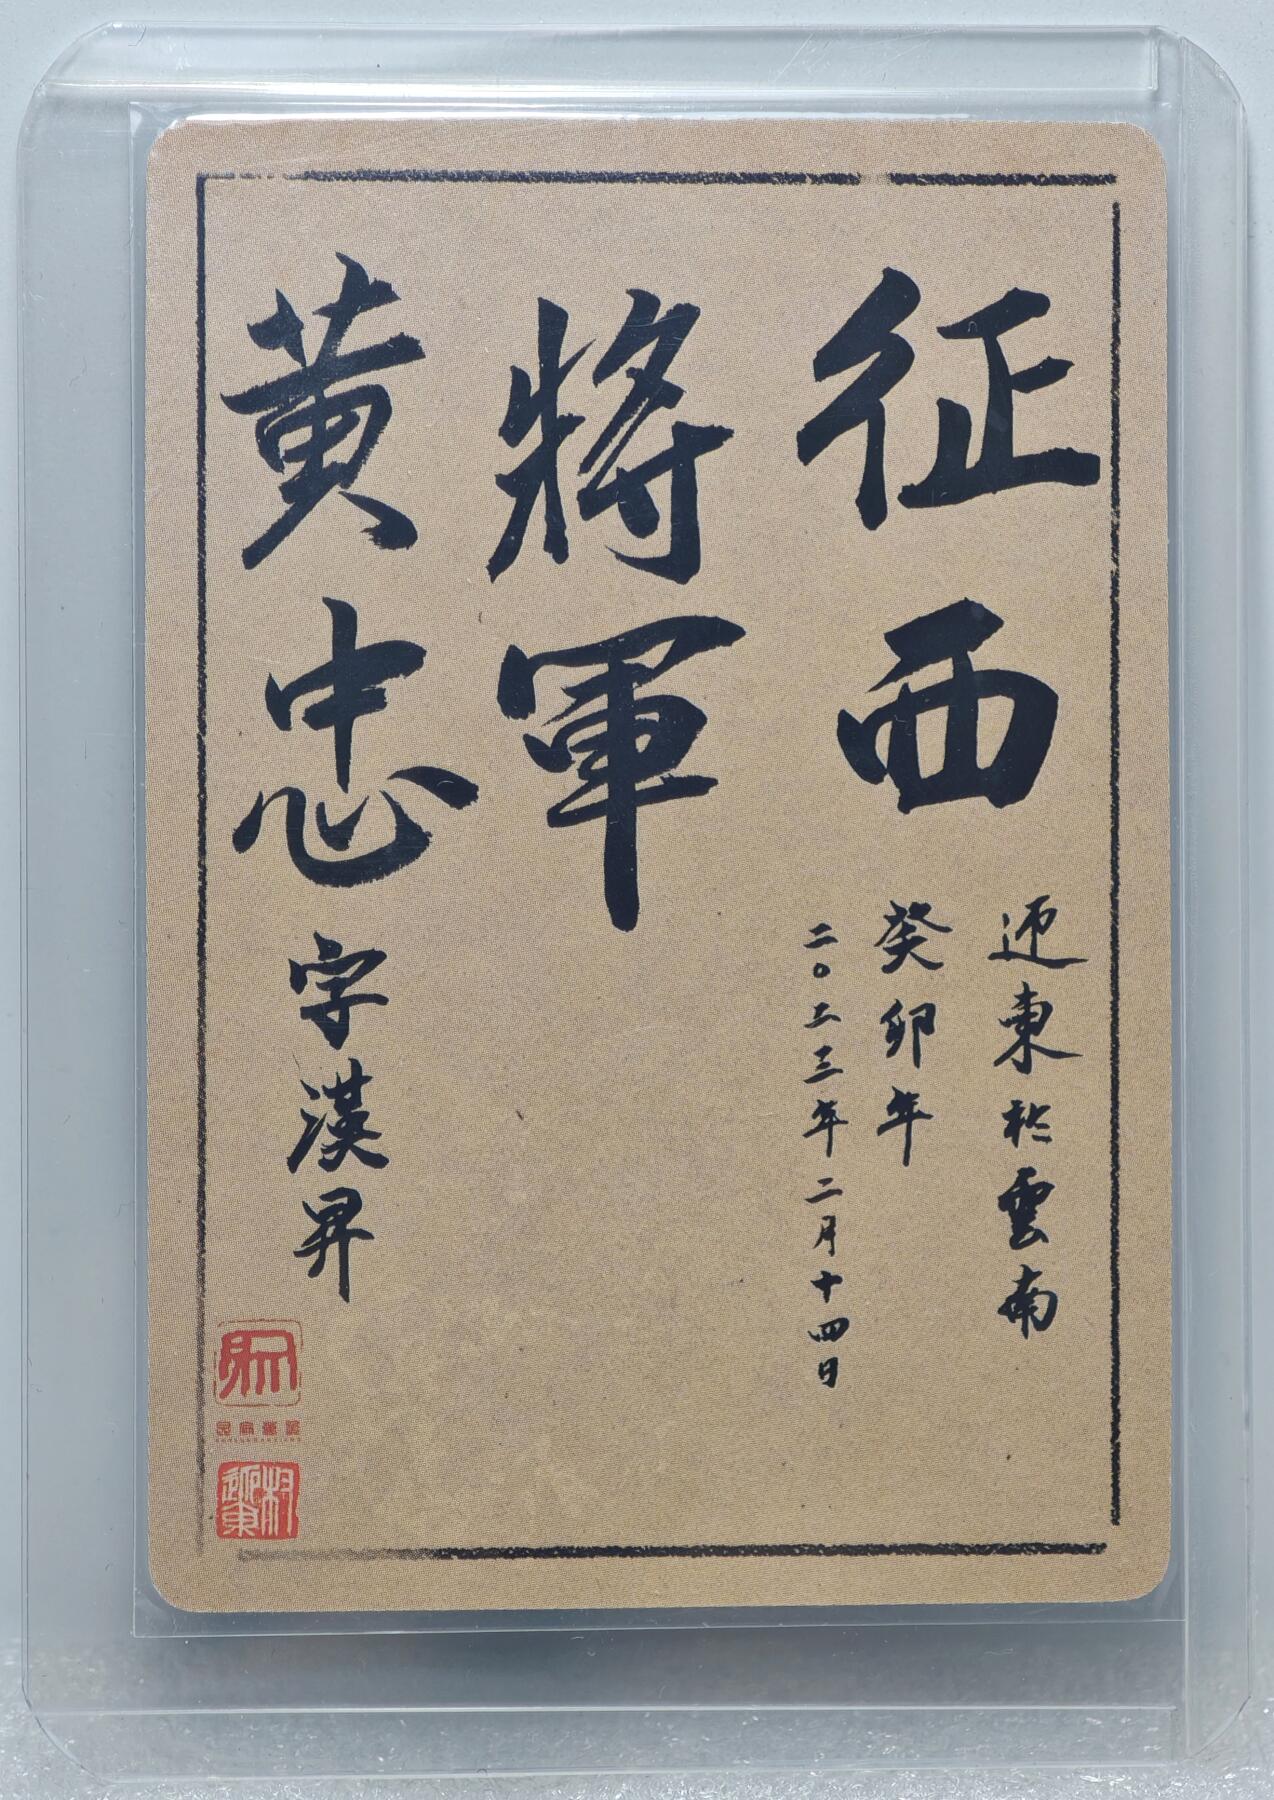 征西
將軍
黃忠
字漢昇
迎東於雲南
癸卯年
二〇二三年二月十四日